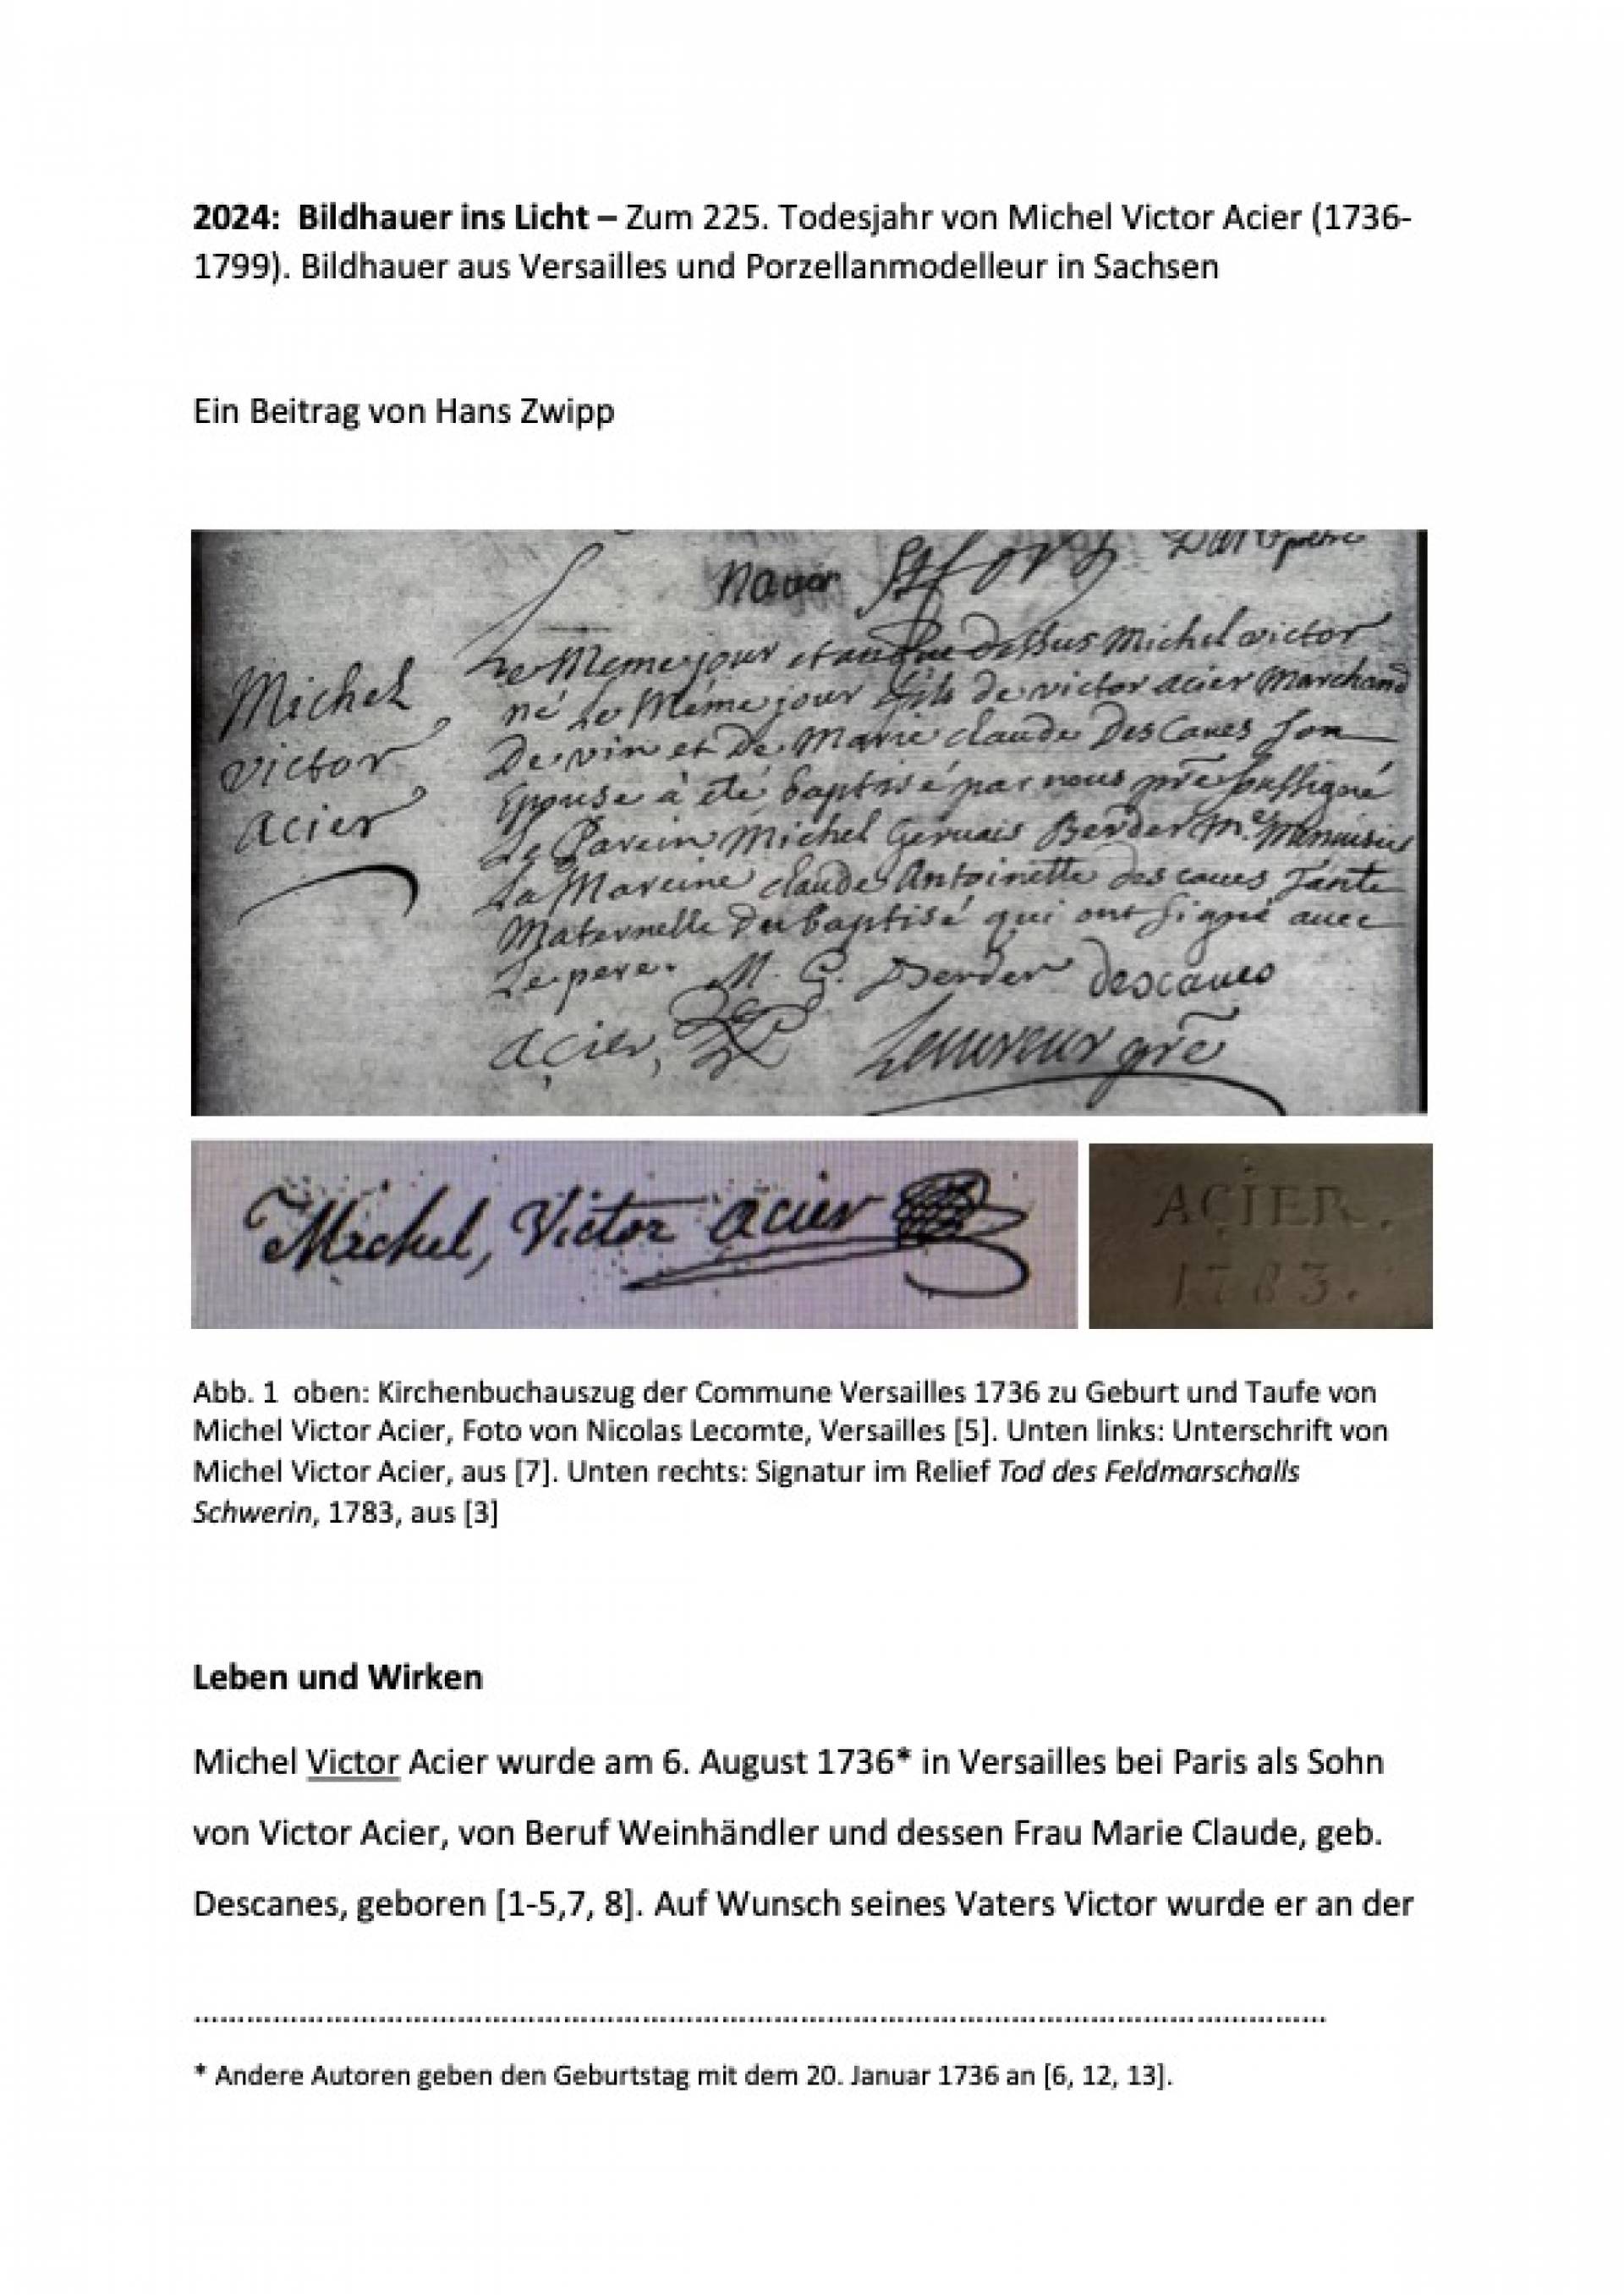 2024: Bildhauer ins Licht – Zum 225. Todesjahr von Michel Victor Acier (1736-
1799). Bildhauer aus Versailles und Porzellanmodelleur in Sachsen
Ein Beitrag von Hans Zwipp
Michel
victor
acier
Le Meme jour et an que dessus Michel victor
né Le Méme jour fils de victor acier Marchand
De vin et De Marie claude Descaves son
Epouse à été baptisé par nous prē soussigné
Le Parein Michel Gervais Berder Me. Menuisier
La Mareine claude Antoinette des caves Tante
Maternelle Du baptisé qui ont signé avec
Le pere. M. G. Berder descaves
acier,
Michel, Victor acier
ACIER.
1783.
Abb. 1 oben: Kirchenbuchauszug der Commune Versailles 1736 zu Geburt und Taufe von
Michel Victor Acier, Foto von Nicolas Lecomte, Versailles [5]. Unten links: Unterschrift von
Michel Victor Acier, aus [7]. Unten rechts: Signatur im Relief Tod des Feldmarschalls
Schwerin, 1783, aus [3]
Leben und Wirken
Michel Victor Acier wurde am 6. August 1736* in Versailles bei Paris als Sohn
von Victor Acier, von Beruf Weinhändler und dessen Frau Marie Claude, geb.
Descanes, geboren [1-5,7, 8]. Auf Wunsch seines Vaters Victor wurde er an der
* Andere Autoren geben den Geburtstag mit dem 20. Januar 1736 an [6, 12, 13].